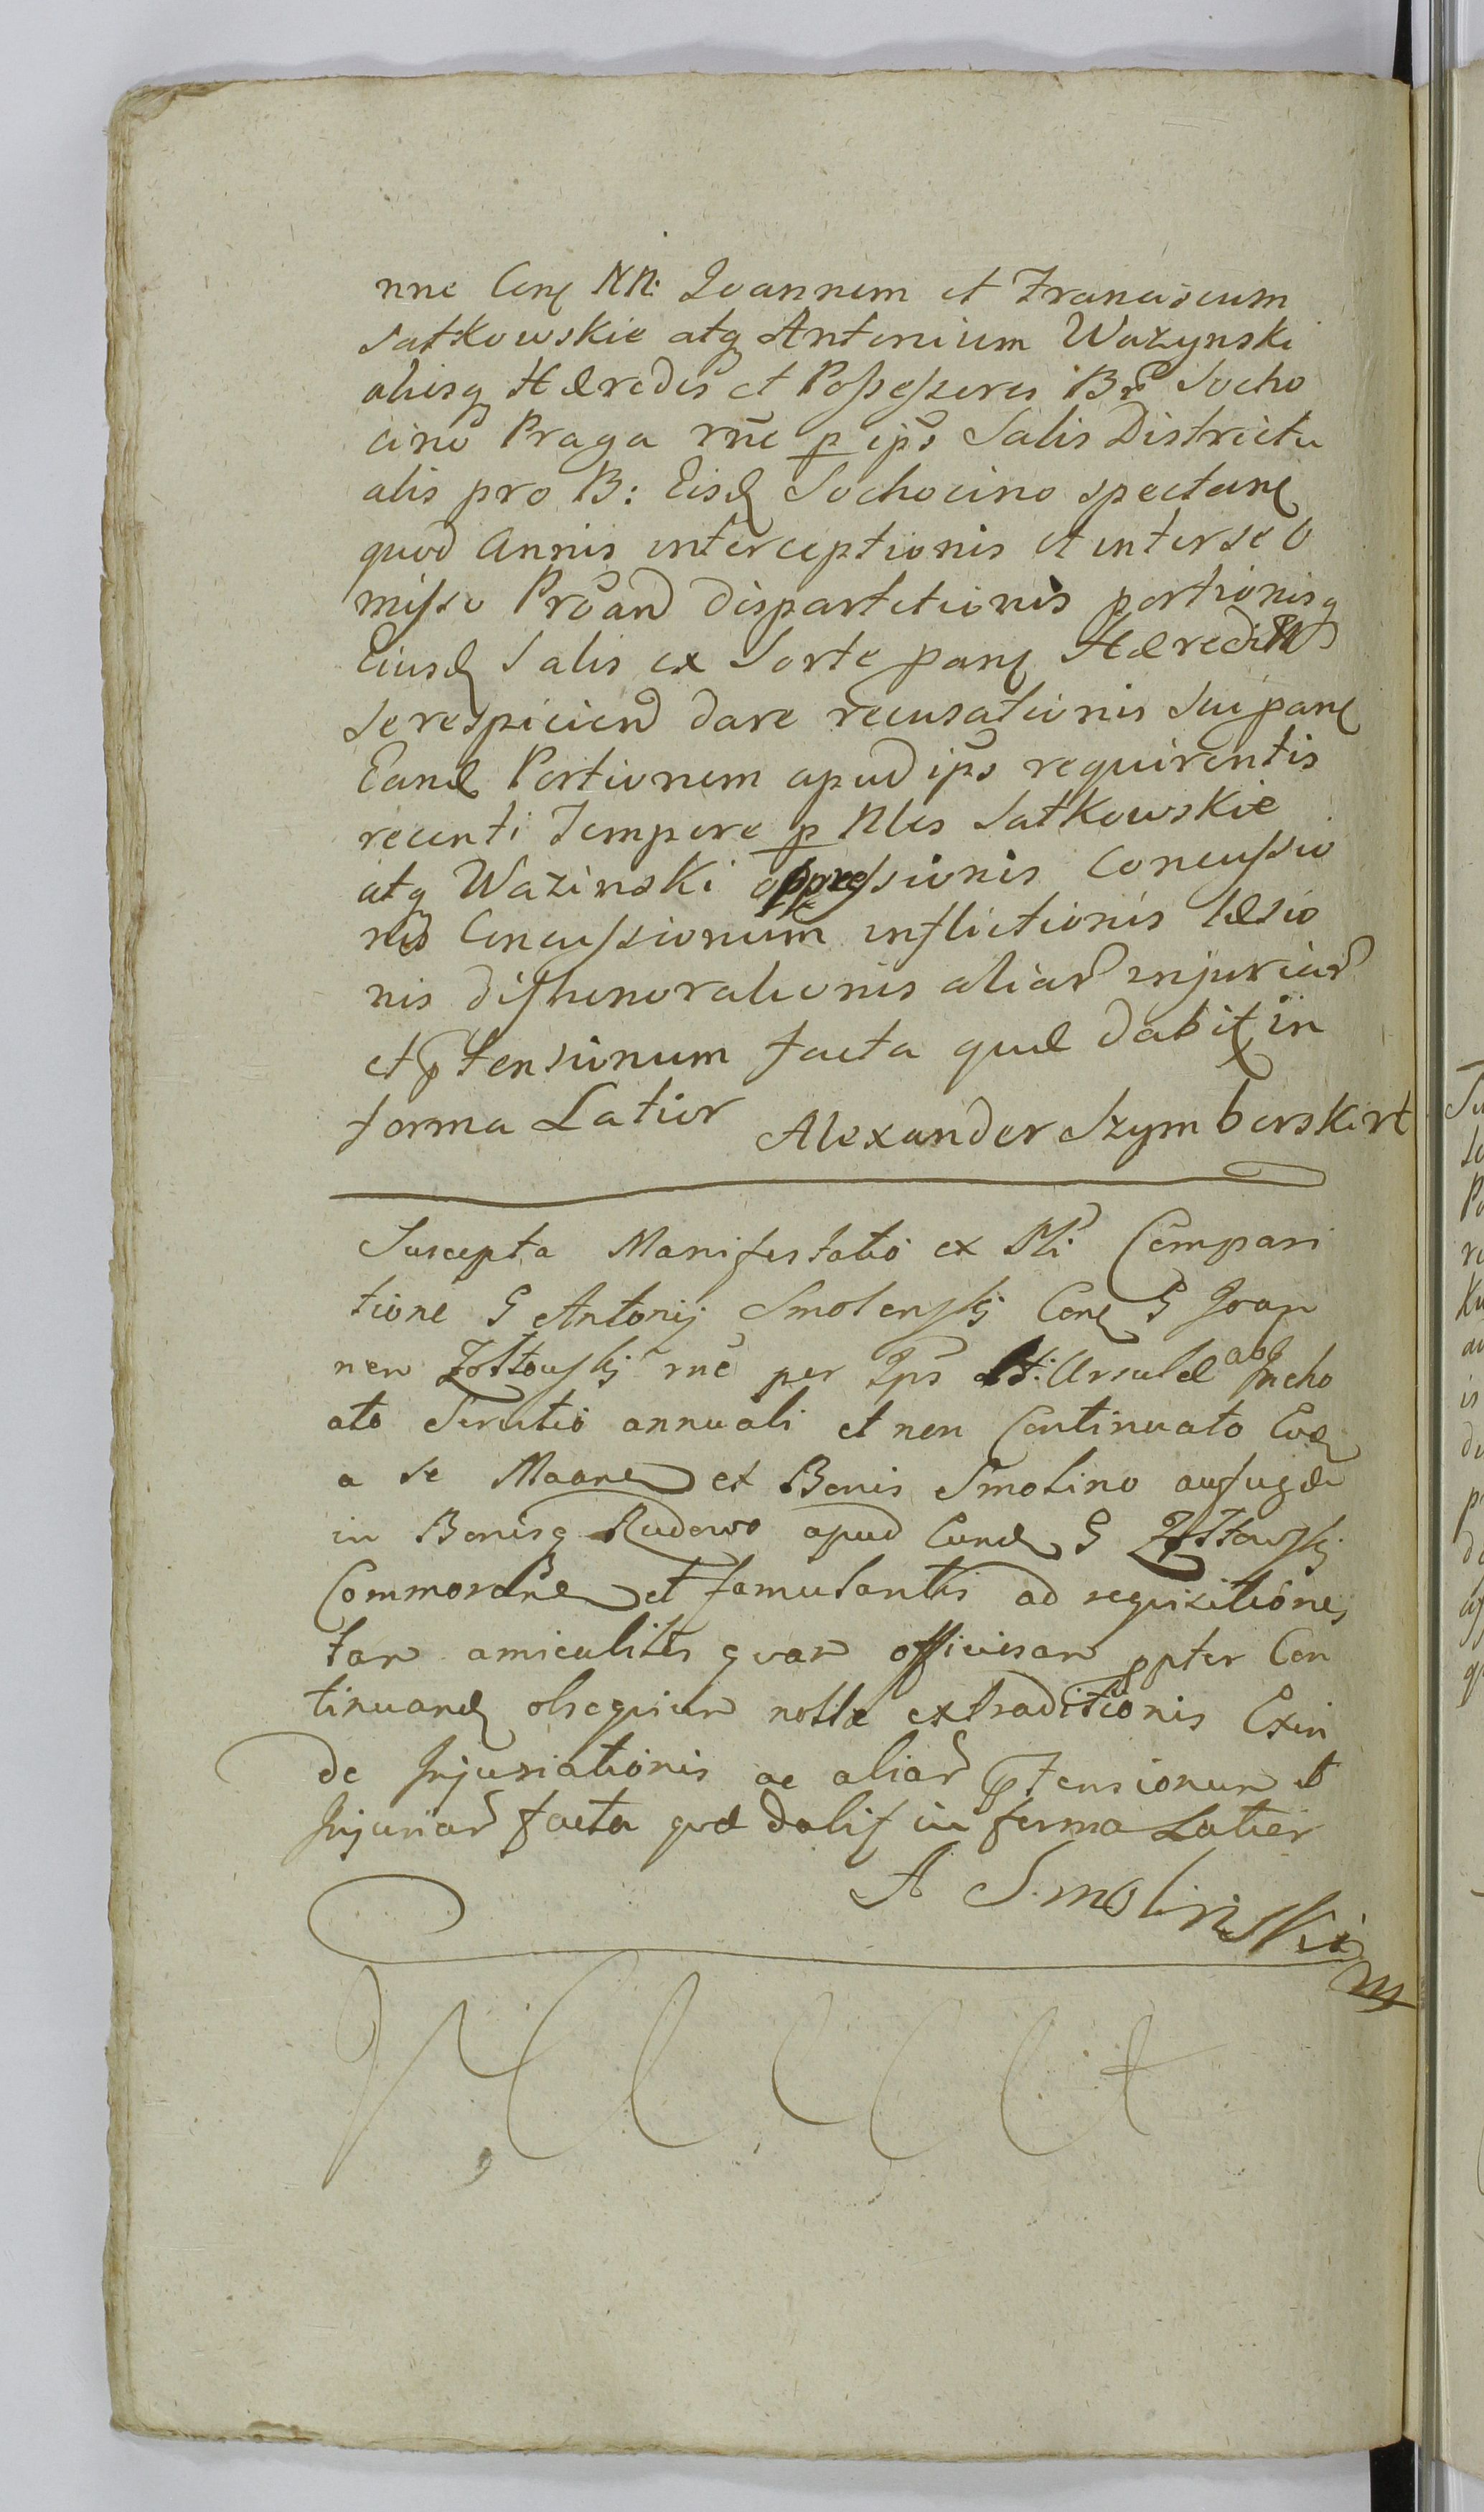 nne Conq NN: Joannem et Franciscum
Satkowskie atq Antonium Wazynski
aliosq Hæredes et Possessores Br̃ Socho
cino Praga rñe p ips̃ Salis Districtu
alis pro B: Eisd Sochocino spectanq
quod Annis interceptionis et inter se O
misso Proand dispartitionis portionisq
Eiusd Salis ex Sorte panq Hæredit
se respiciend dare recusationis sui panq
Eand Portionem apud ips̃ requirentis
recenti Tempore p Nles Satkowskie
atq Wazinski oppressionis Concussio
nis Concussionum inflictionis læsio
nis dishonorationis aliar̃ injuriar̃
et ptensionum facta quæ dabit in
forma Latior Alexander Szymborski rt
Suscepta Manifestatio ex Pli Compari
tione G Antonij Smolenskj Conq G Joan
nem Zołtowskj rñe per Ips H: Ursulæ abb Incho
ato Servitio annuali et non Continuato Eod
a se Maane et Bonis Smolino aufugæ
in Bonisq Rudowo apud Eund G Zołtowskj
Commorañe et famulantis ad requisitiones
tam amicabiles quam officiosam ppter Con
tinuand obsequium nolle extraditionis Exin
de Injuriationis ac aliar̃ ptensionum et
Injuriar̃ facta quæ dabit in forma Latior
A Smolinski mp